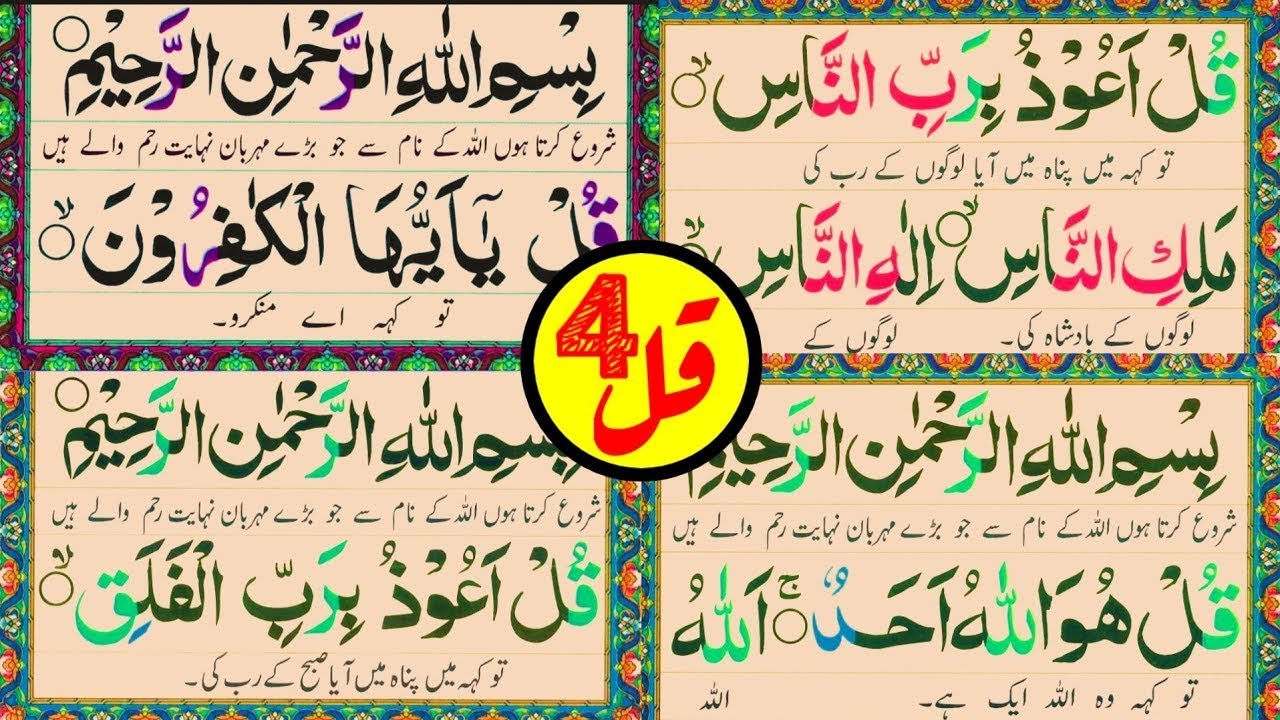 بِسْمِ اللّٰهِ الرَّحْمٰنِ الرَّحِيْمِ
شروع کرتا ہوں اللہ کے نام سے جو بڑے مہربان نہایت رحم والے ہیں
قُلْ يٰۤاَيُّهَا الْكٰفِرُوْنَ ۙ
تو کہہ اے منکرو۔
قُلْ اَعُوْذُ بِرَبِّ النَّاسِ ۙ
تو کہہ میں پناہ میں آیا لوگوں کے رب کی
مَلِكِ النَّاسِ ۙ اِلٰهِ النَّاسِ ۙ
لوگوں کے بادشاہ کی۔ لوگوں کے
4 قل
بِسْمِ اللّٰهِ الرَّحْمٰنِ الرَّحِيْمِ
شروع کرتا ہوں اللہ کے نام سے جو بڑے مہربان نہایت رحم والے ہیں
قُلْ اَعُوْذُ بِرَبِّ الْفَلَقِ ۙ
تو کہہ میں پناہ میں آیا صبح کے رب کی۔
بِسْمِ اللّٰهِ الرَّحْمٰنِ الرَّحِيْمِ
شروع کرتا ہوں اللہ کے نام سے جو بڑے مہربان نہایت رحم والے ہیں
قُلْ هُوَ اللّٰهُ اَحَدٌ ۚ اَللّٰهُ
تو کہہ وہ اللہ ایک ہے۔ اللہ